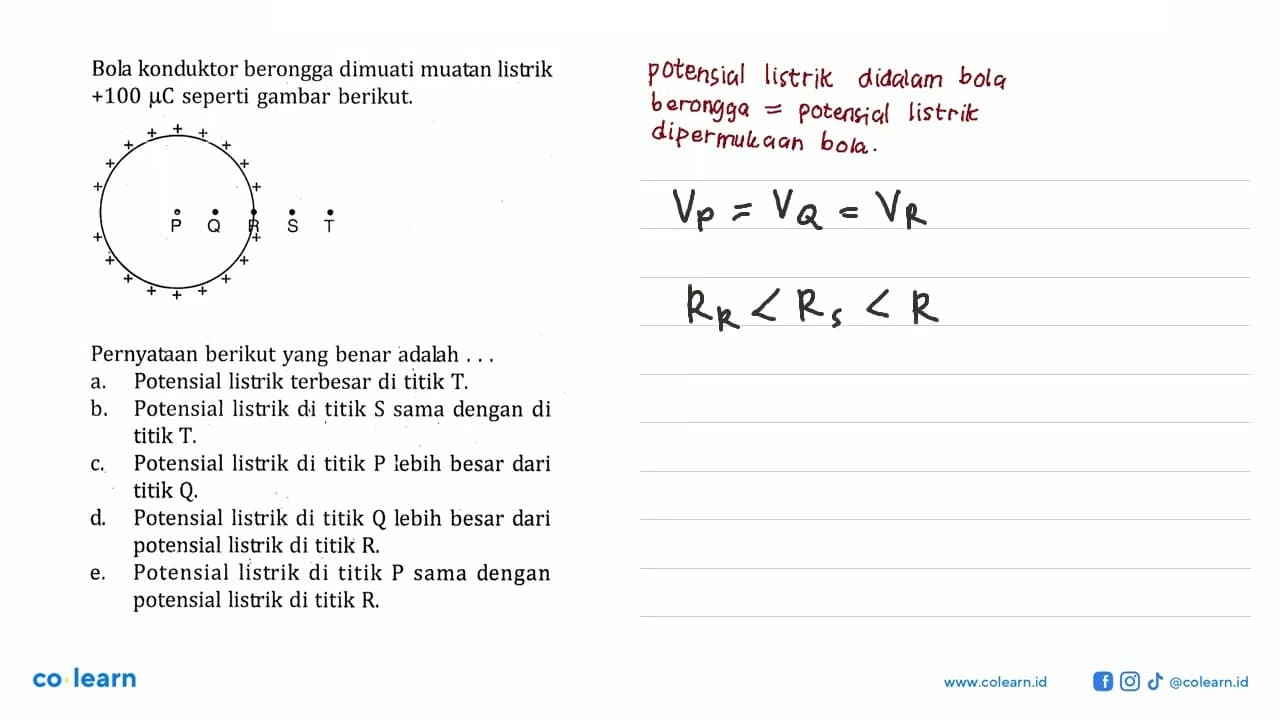 Bola konduktor berongga dimuati muatan listrik
+100 μC seperti gambar berikut.
P Q R S T
Pernyataan berikut yang benar adalah . . .
a. Potensial listrik terbesar di titik T.
b. Potensial listrik di titik S sama dengan di
titik T.
c. Potensial listrik di titik P lebih besar dari
titik Q.
d. Potensial listrik di titik Q lebih besar dari
potensial listrik di titik R.
e. Potensial listrik di titik P sama dengan
potensial listrik di titik R.
potensial listrik didalam bola
berongga = potensial listrik
dipermukaan bola.
Vp = VQ = VR
RR < Rs < R
co learn
www.colearn.id
@colearn.id